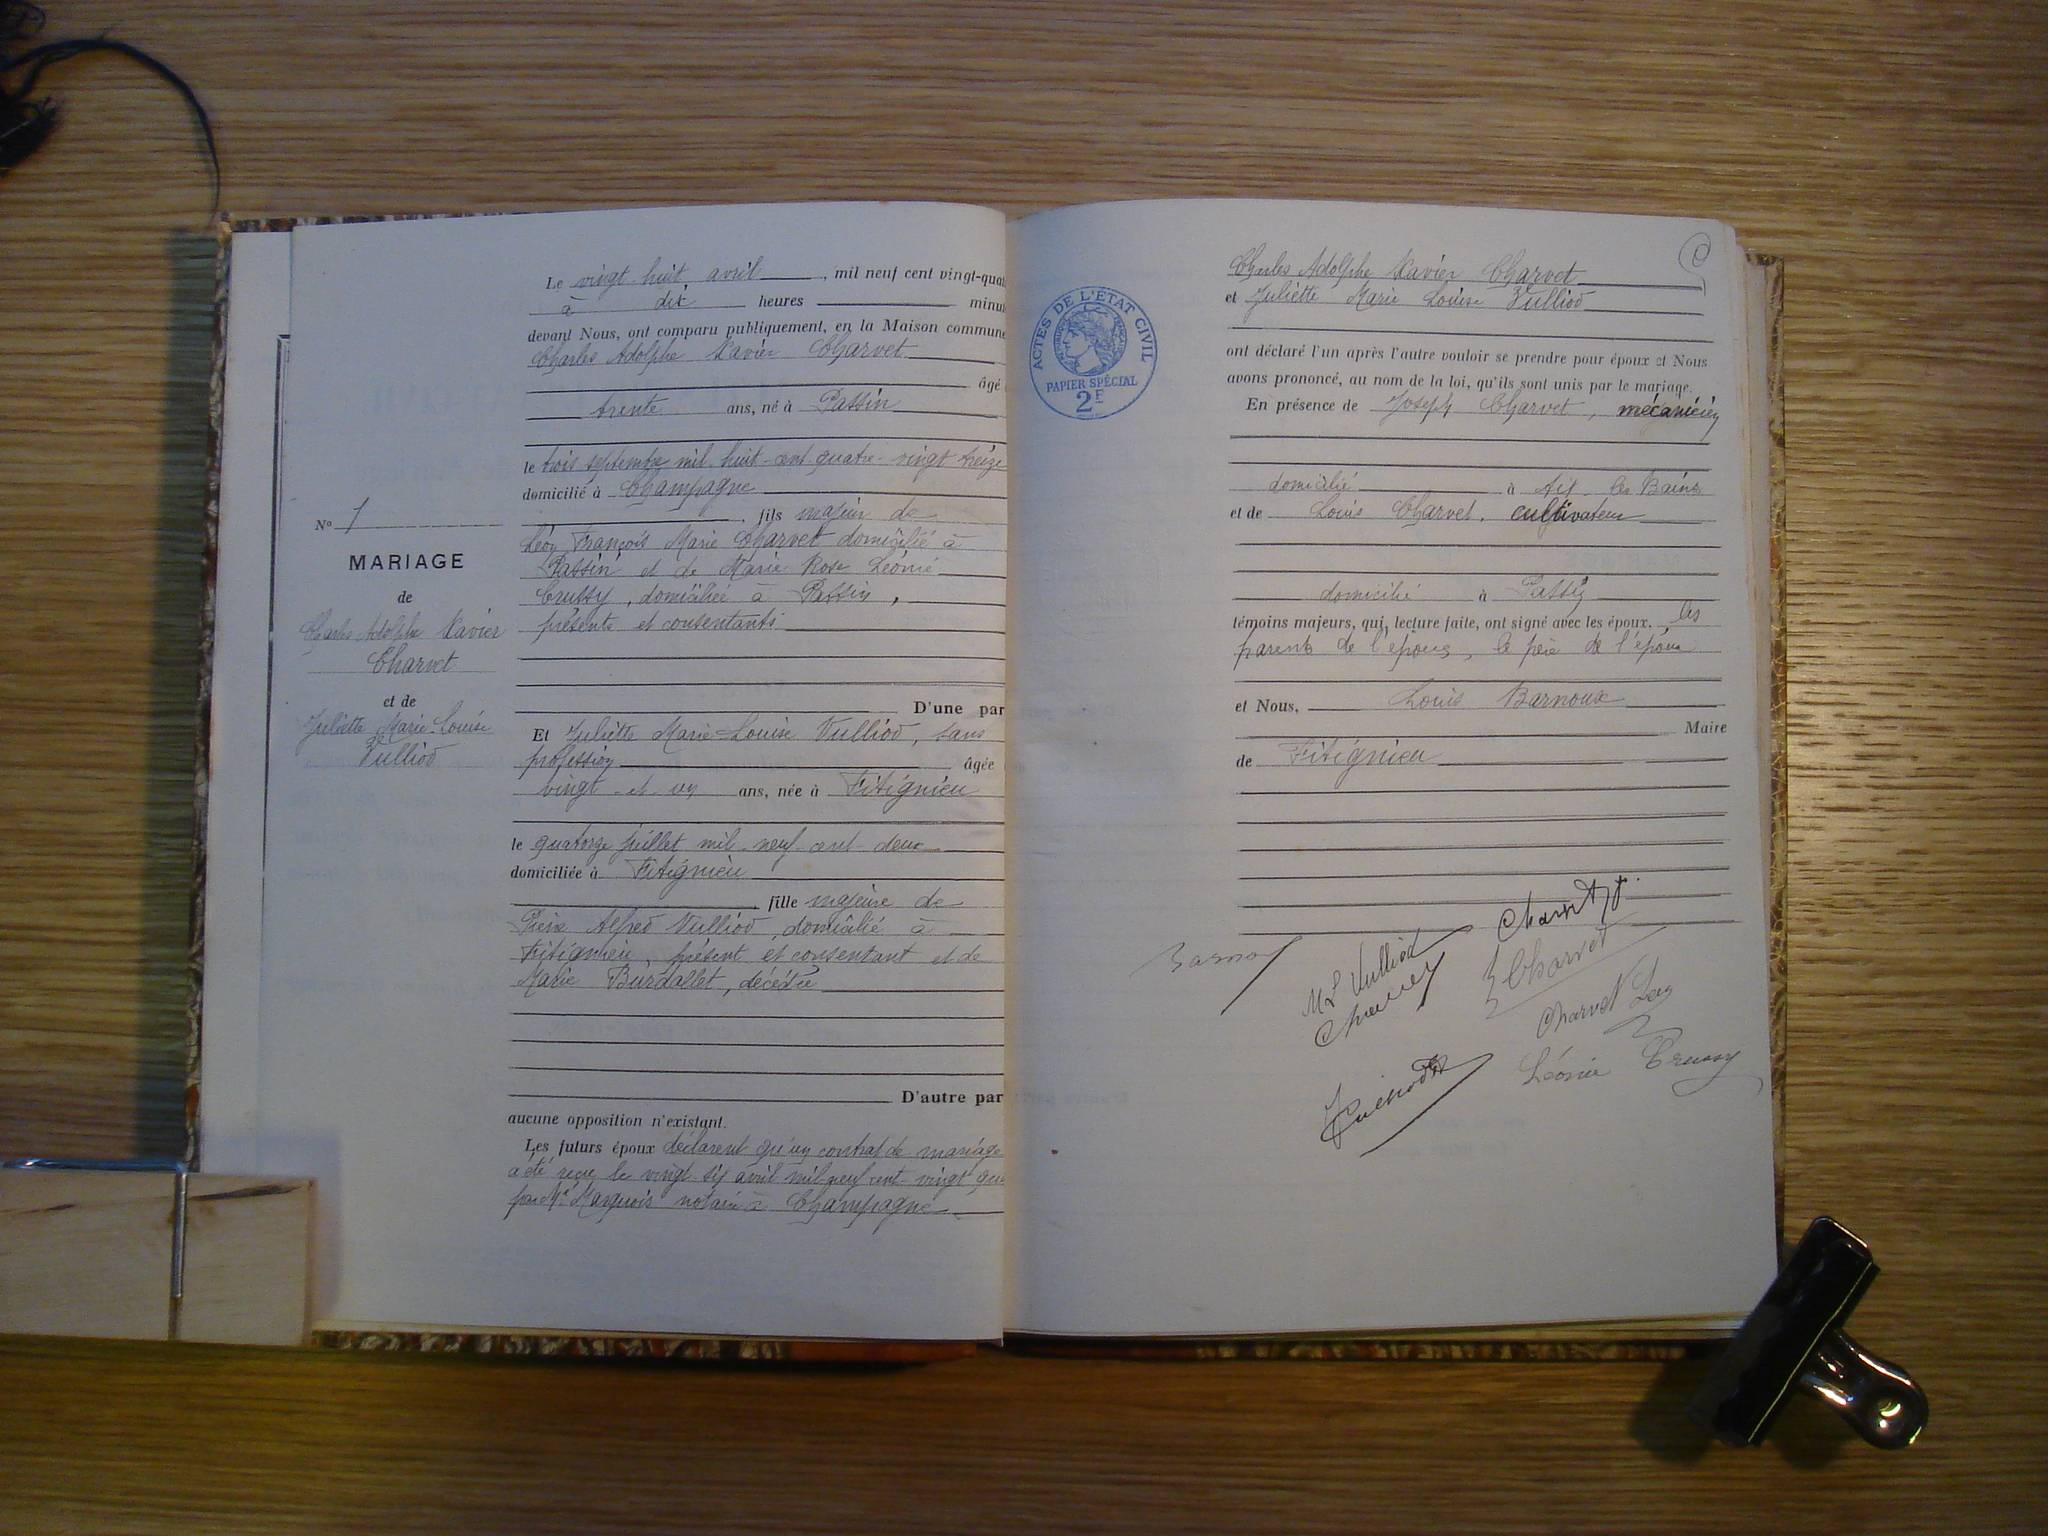 Le vingt huit avril, mil neuf cent vingt-quat
à dix heures minu
devant Nous, ont comparu publiquement, en la Maison commune
Charles Adolphe Xavier Charvet
âgé
trente ans, né à Passin
le trois septembre mil-huit-cent-quatre-vingt treize
domicilié à Champagne
, fils majeur de
Léon François Marie Charvet domicilié à
Passin et de Marie Rose Léonie
Crussy, domiciliée à Passin,
présents et consentants
D'une par
Et Juliette Marie-Louise Vulliod, sans
profession âgée
vingt-et-un ans, née à Fitignieu
le quatorze juillet mil-neuf-cent-deux
domiciliée à Fitignieu
, fille majeure de
Pierre Alfred Vulliod, domicilié à
Fitignieu, présent et consentant et de
Marie Burdallet, décédée
D'autre par
aucune opposition n'existant.
Les futurs époux déclarent qu'un contrat de mariage
a été reçu le vingt-six avril mil neuf cent-vingt qu
par Me Marquois notaire à Champagne
No 1
MARIAGE
de
Charles Adolphe Xavier
Charvet
et de
Juliette Marie-Louise
Vulliod
Charles Adolphe Xavier Charvet
et Juliette Marie Louise Vulliod
ACTES DE L'ÉTAT CIVIL
RÉPUBLIQUE FRANÇAISE
PAPIER SPÉCIAL
2F
ont déclaré l'un après l'autre vouloir se prendre pour époux et Nous
avons prononcé, au nom de la loi, qu'ils sont unis par le mariage.
En présence de Joseph Charvet, mécanicien
domicilié à Aix-les Bains
et de Louis Charvet, cultivateur
domicilié à Passin
témoins majeurs, qui, lecture faite, ont signé avec les époux. les
parents de l'époux, le père de l'épouse
et Nous, Louis Barnoux
Maire
de Fitignieu
Charvet
M L Vulliod
Charvet
Charvet Léon
Léonie Crussy